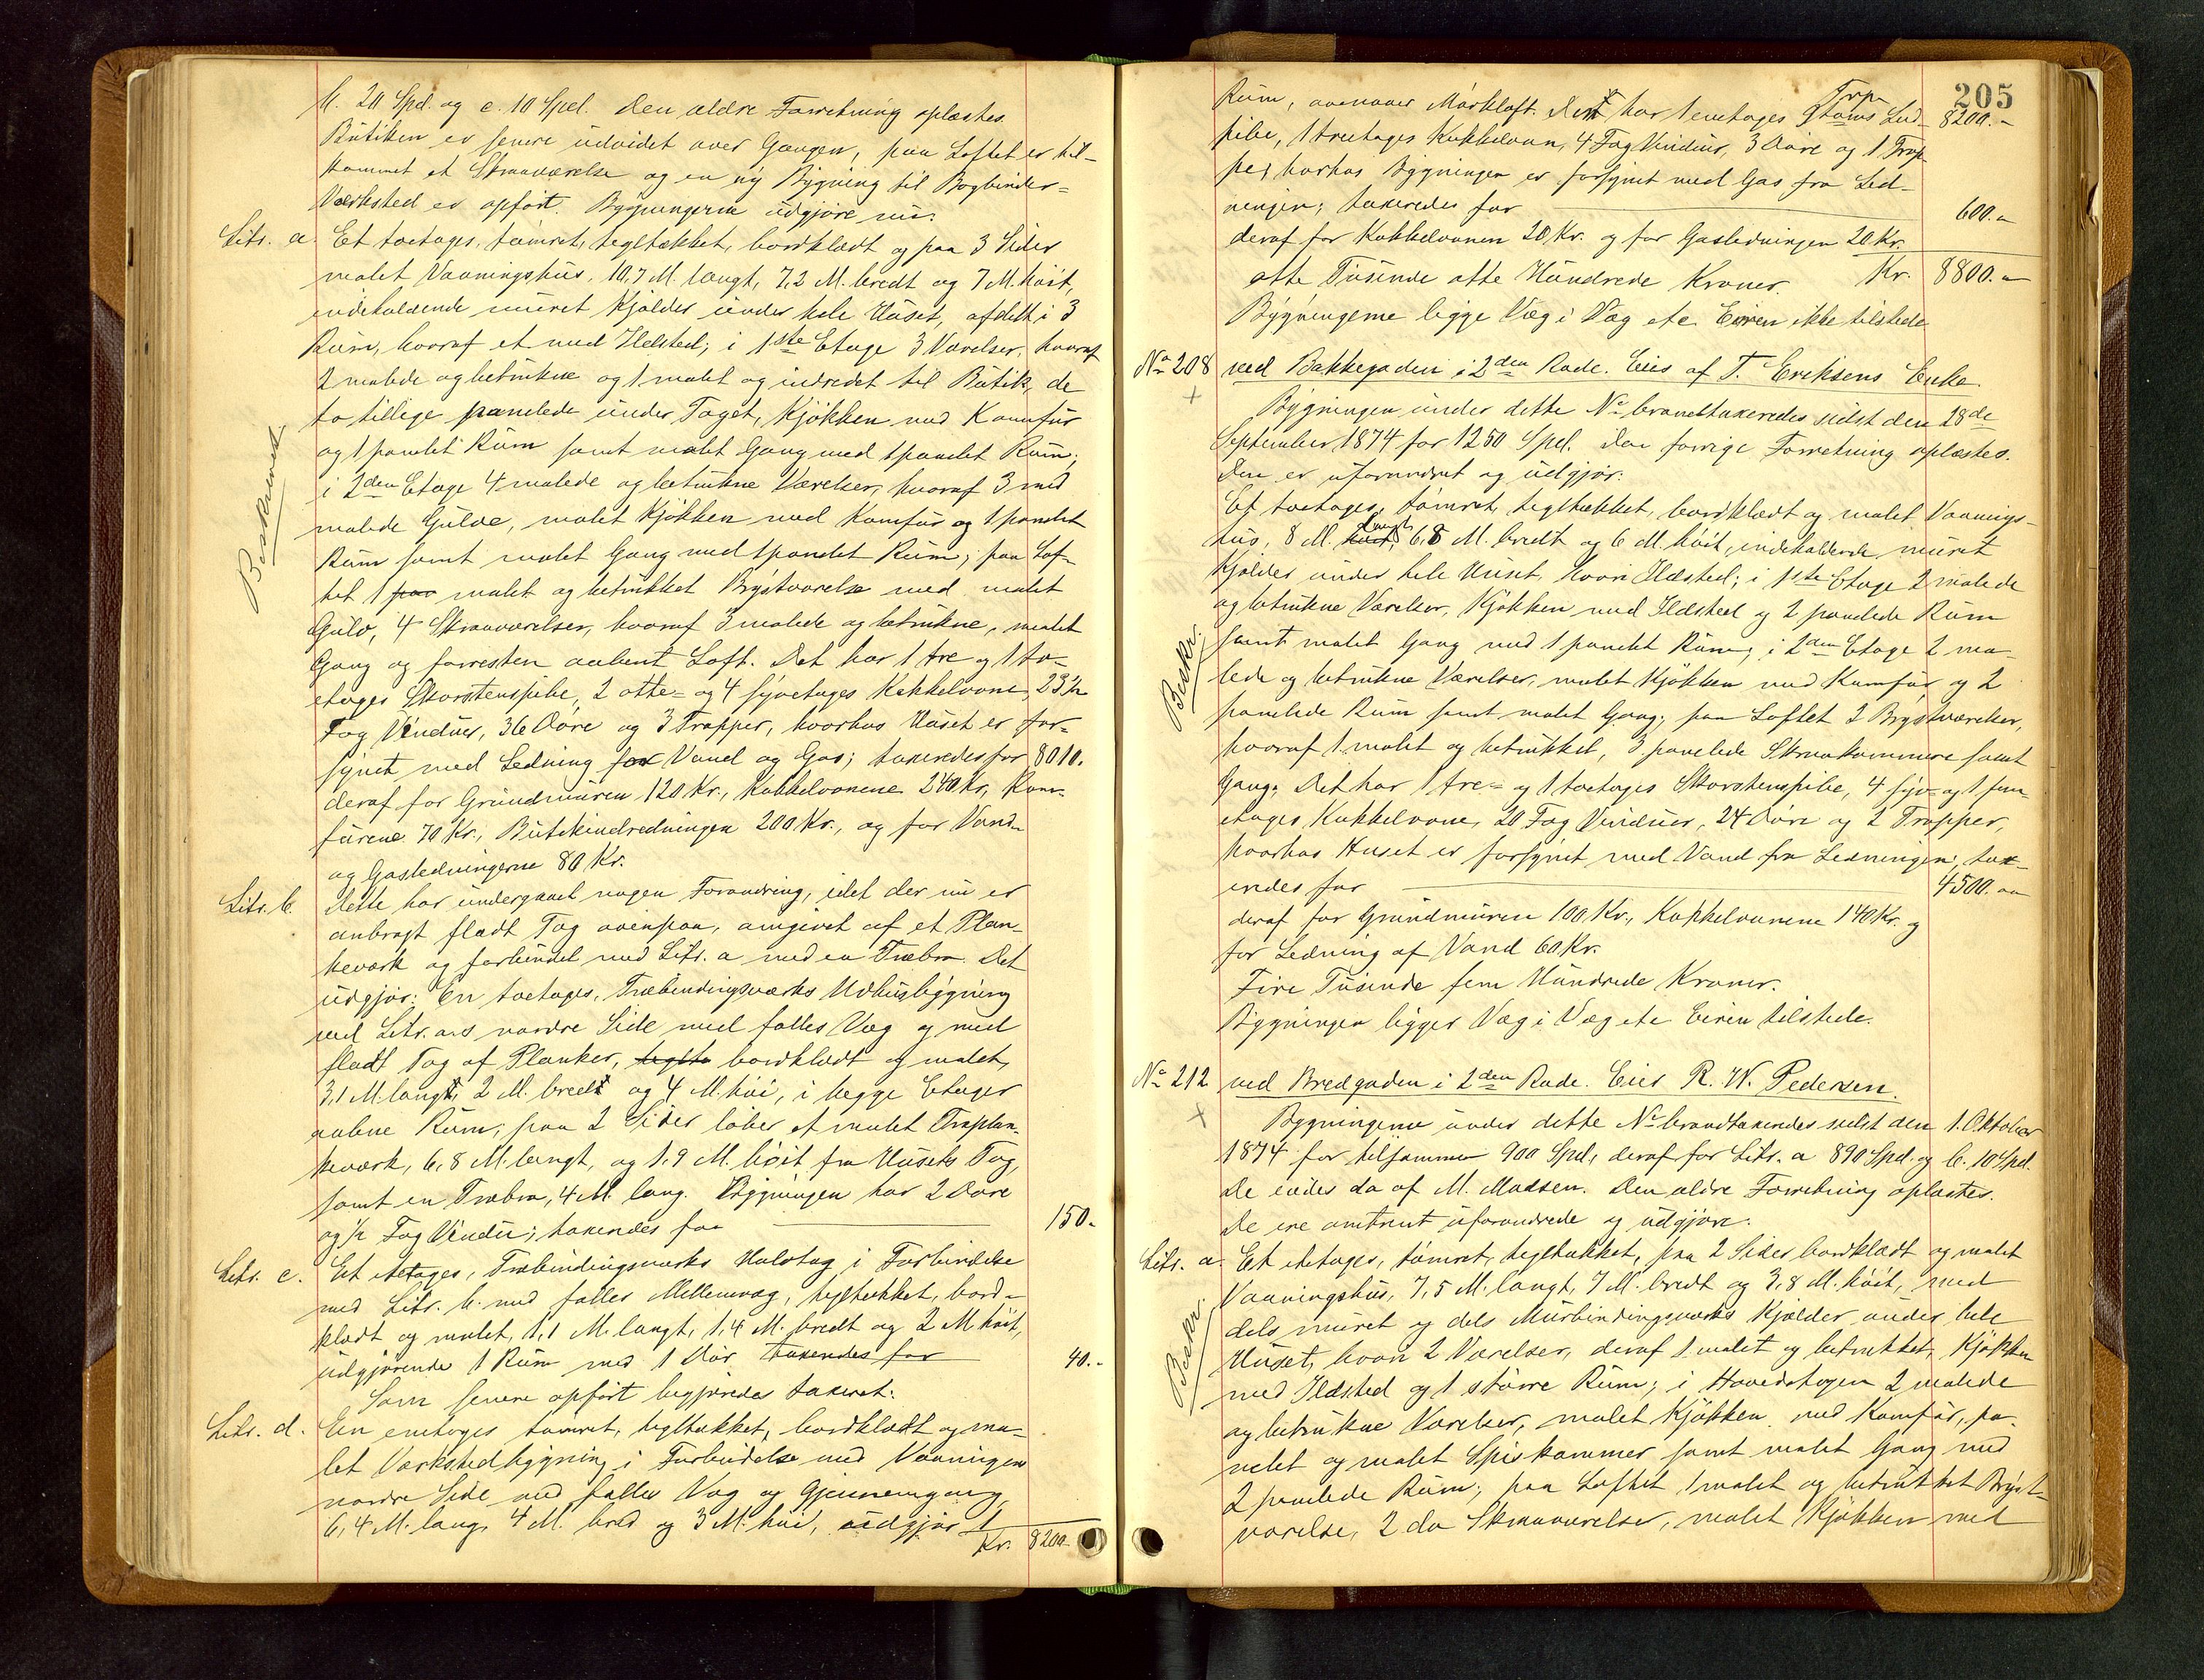 b. 20 Spd. og c. 10 Spd. Den ældre Forretning oplæstes.
Butiken er senere udvidet over Gangen, paa Loftet er til-
kommet et Skraaværelse og en ny Bygning til Bogbinder-
Værksted er opført. Bygningerne udgjøre nu:
Litr. a. Et toetages, tømret, tegltækket, bordklædt og paa 3 Sider
malet Vaaningshus, 10,7 M. langt, 7,2 M. bredt og 7 M. høit,
indeholdende muret Kjælder under hele Huset, afdelt i 3
Rum, hvoraf et med Ildsted; i 1ste Etage 3 Værelser, hvoraf
2 malede og betrukne og 1 malet og indredet til Butik, de
to tillige panelede under Taget, Kjøkken med Komfur
og 1 panelet Rum samt malet Gang med 1 panelet Rum;
i 2den Etage 4 malede og betrukne Værelser, hvoraf 3 med
malede Gulve, malet Kjøkken med Komfur og 1 panelet
Rum samt malet Gang med 1 panelet Rum; paa Lof-
tet 1 paa malet og betrukket Brystværelse med malet
Gulv, 4 Skraaværelser, hvoraf 3 malede og betrukne, malet
Gang og forresten aabent Loft. Det har 1 tre og 1 to-
etages Skorstenspibe, 2 otte- og 4 syvetages Kakkelovne, 23 1/2
Fag Vinduer, 36 Døre og 3 Trapper, hvorhos Huset er for-
synet med Ledning for Vand og Gas; taxeredes for 8010.
deraf for Grundmuren 120 Kr., Kakkelovnene 240 Kr., Kom-
furene 70 Kr., Butikindredningen 200 Kr., og for Vand-
og Gasledningerne 80 Kr.
Beskrevet
Litr. b. Dette har undergaaet nogen Forandring, idet der nu er
anbragt fladt Tag ovenpaa, omgivet af et Plan-
keværk og forbundet med Litr. a med en Træbro. Det
udgjør: En toetages, Træbindingsværks Udhusbygning
ved Litr. a's nordre Side med fælles Væg og med
fladt Tag af Planker, teglta bordklædt og malet,
3,1 M. langt, 2 M. bredt og 4 M. høi, i begge Etager
aabne Rum; paa 2 Sider løber et malet Træplan-
keværk, 6,8 M. langt, og 1,9 M. høit fra Husets Tag,
samt en Træbro, 4 M. lang. Bygningen har 2 Døre
og 1/2 Fag Vindu; taxeredes for 150.-
Litr. c. Et etetages, Træbindingsværks Halvtag i Forbindelse
med Litr. b. med fælles Mellemvæg, tegltækket, bord-
klædt og malet, 1,1 M. langt, 1,4 M. bredt og 2 M. høit,
udgjørende 1 Rum med 1 Dør taxeredes for 40.-
Som senere opført begjæredes taxeret:
Litr. d. En enetages tømret, tegltækket, bordklædt og ma-
let Værkstedbygning i Forbindelse med Vaaningens
nordre Side med fælles Væg og Gjennemgang,
6,4 M. lang, 4 M. bred og 3 M. høi, udgjør 1
Kr. 8200.-
205
Rum, ovenover Mørkloft. Den har 1 enetages Led-
8200.-
pibe, 1 treetages Kakkelovn, 4 Fag Vinduer, 3 Døre og 1 Trap-
pe, hvorhos Bygningen er forsynet med Gas fra Led-
ningen; taxeredes for 600.-
deraf for Kakkelovnen 20 Kr. og for Gasledningen 20 Kr.
otte Tusinde otte Hundrede Kroner. Kr. 8800.-
Bygningerne ligge Væg i Væg etc. Eieren ikke tilstede
No 208 ved Bakkegaden i 2den Rode. Eies af T. Eriksens Enke.
Bygningen under dette No brandtaxeredes sidst den 28de
September 1874 for 1250 Spd. Den forrige Forretning oplæstes.
Den er uforandret og udgjør:
Et toetages, tømret, tegltækket, bordklædt og malet Vaanings-
hus, 8 M. høit, langt 6,8 M. bredt og 6 M. høit, indeholdende muret
Kjælder under hele Huset, hvori Ildsted; i 1ste Etage 2 malede
og betrukne Værelser, Kjøkken med Ildsted og 2 panelede Rum
samt malet Gang med 1 panelet Rum; i 2den Etage 2 ma-
lede og betrukne Værelser, malet Kjøkken med Komfur og 2
panelede Rum samt malet Gang; paa Loftet 2 Brystværelser,
hvoraf 1 malet og betrukket, 3 panelede Skraakammere samt
Gang. Det har 1 tre- og 1 toetages Skorstenspibe, 4 syv- og 1 fem-
etages Kakkelovne, 20 Fag Vinduer, 24 Døre og 2 Trapper,
hvorhos Huset er forsynet med Vand fra Ledningen; tax-
eredes for 4500.-
deraf for Grundmuren 100 Kr., Kakkelovnene 140 Kr. og
for Ledning af Vand 60 Kr.
Fire Tusinde fem Hundrede Kroner.
Bygningen ligger Væg i Væg etc. Eieren tilstede.
Beskr.
No 212 ved Bredgaden i 2den Rode. Eier R. W. Pedersen.
Bygningerne under dette No brandtaxeredes sidst den 1. Oktober
1874 for tilsammen 900 Spd., deraf for Litr. a 890 Spd. og b. 10 Spd.
De eiedes da af M. Madsen. Den ældre Forretning oplæstes.
De ere omtrent uforandrede og udgjøre:
Litr. a. Et etetages, tømret, tegltækket, paa 2 Sider bordklædt og malet
Vaaningshus, 7,5 M. langt, 7 M. bredt og 3,8 M. høit, med
dels muret og dels Murbindingsværks Kjælder under hele
Huset, hvori 2 Værelser, deraf 1 malet og betrukket, Kjøkken
med Ildsted og 1 større Rum; i Hovedetagen 2 malede
og betrukne Værelser, malet Kjøkken med Komfur, pa-
nelet og malet Spiskammer samt malet Gang med
2 panelede Rum; paa Loftet 1 malet og betrukket Bryst-
værelse, 2 do Skraaværelser, malet Kjøkken med
Beskr.